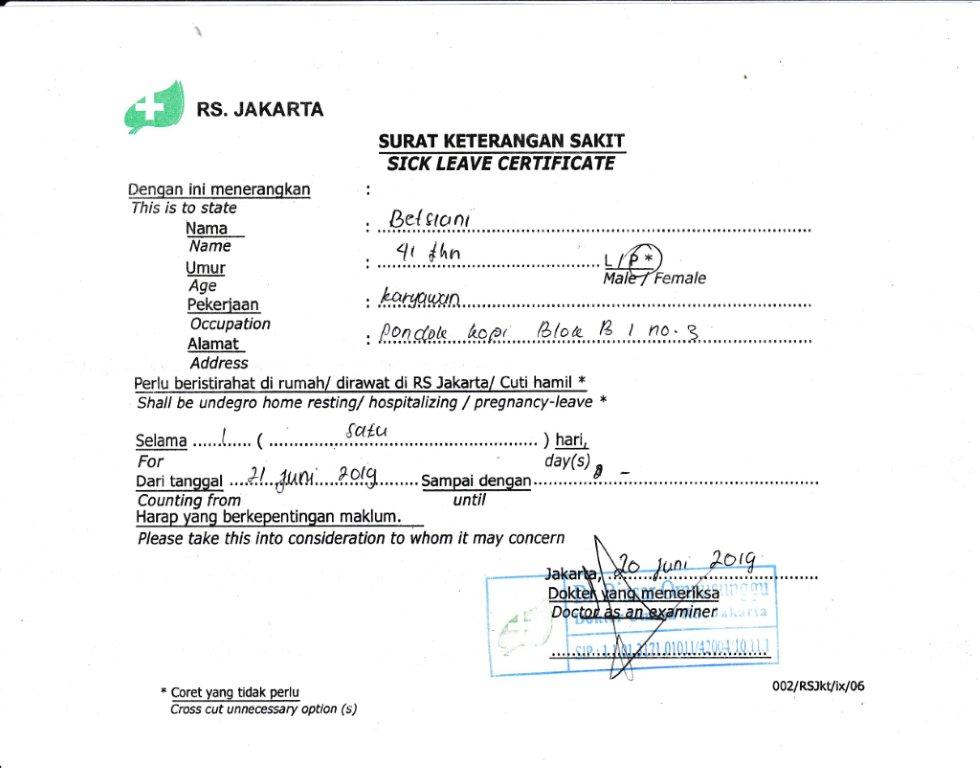 RS. JAKARTA
SURAT KETERANGAN SAKIT
SICK LEAVE CERTIFICATE
Dengan ini menerangkan :
This is to state
Nama : Betsiani
Name
Umur : 41 thn L / P *
Age Male / Female
Pekerjaan : karyawan
Occupation
Alamat : Pondok kopi Blok B 1 no. 3
Address
Perlu beristirahat di rumah/ dirawat di RS Jakarta/ Cuti hamil *
Shall be undegro home resting/ hospitalizing / pregnancy-leave *
Selama 1 ( satu ) hari,
For day(s)
Dari tanggal 21 Juni 2019 Sampai dengan -
Counting from until
Harap yang berkepentingan maklum.
Please take this into consideration to whom it may concern
Jakarta, 20 Juni 2019
Dokter yang memeriksa
Doctor as an examiner
002/RSJkt/ix/06
* Coret yang tidak perlu
Cross cut unnecessary option (s)